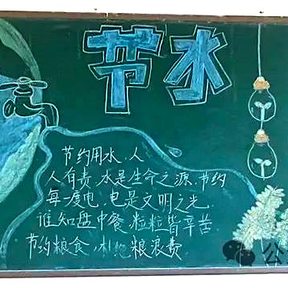 节水
节约用水，人
人有责，水是生命之源。节约
每一度电，电是文明之光。
谁知盘中餐，粒粒皆辛苦
节约粮食，杜绝粮浪费
公